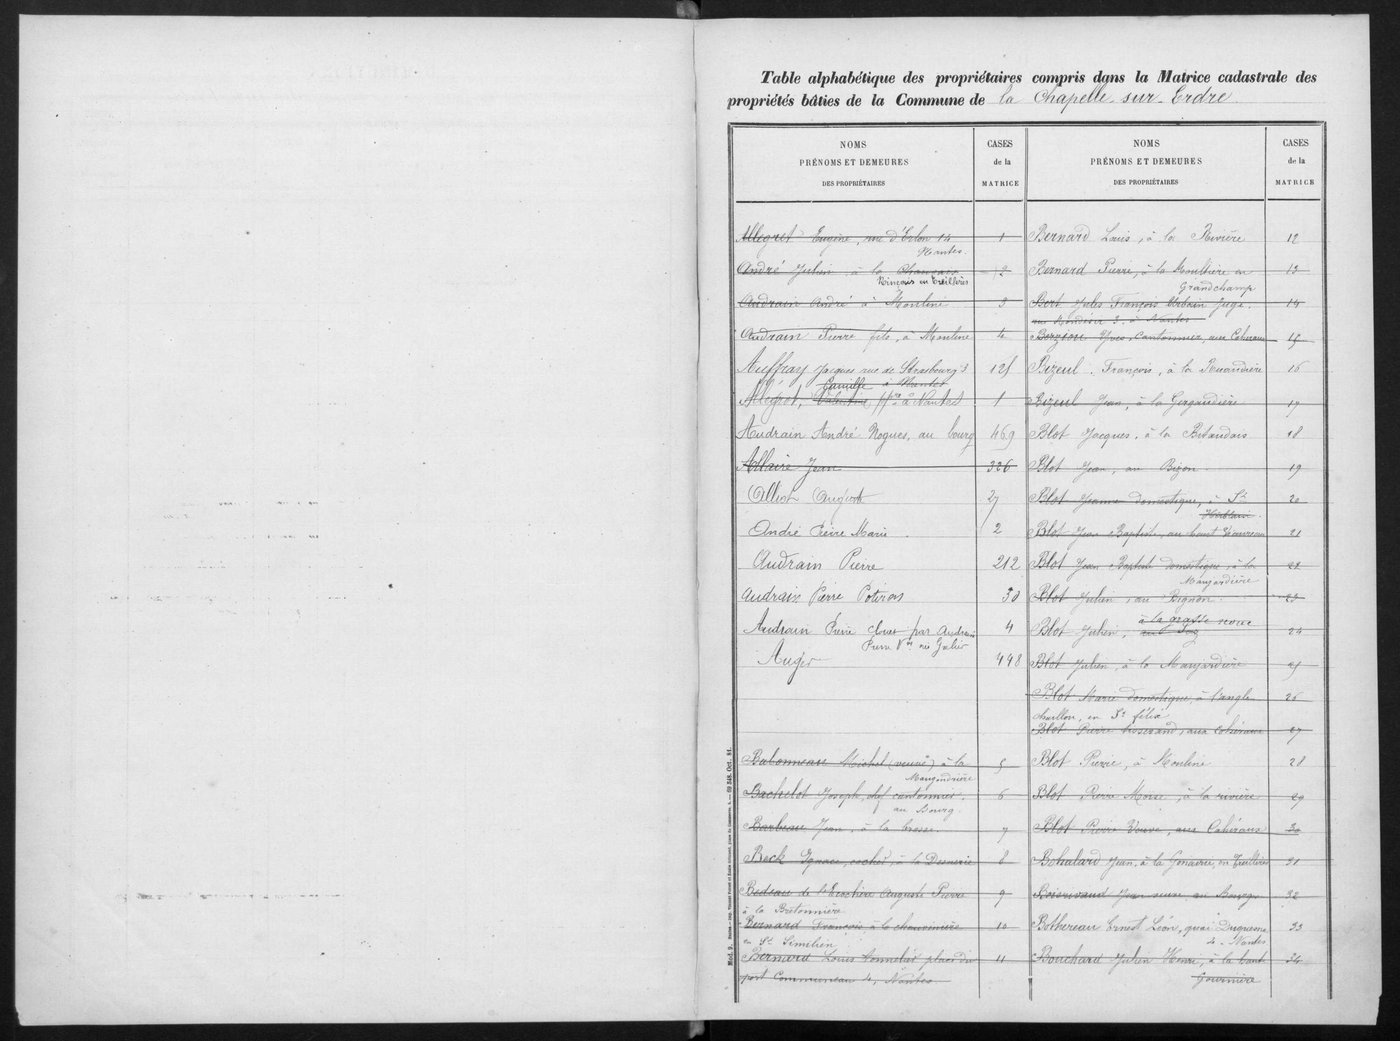 Table alphabétique des propriétaires compris dans la Matrice cadastrale des
propriétés bâties de la Commune de la Chapelle-sur-Erdre
NOMS
PRÉNOMS ET DEMEURES
DES PROPRIÉTAIRES
CASES
de la
MATRICE
Allegret Eugène, rue d'Erlon 14 1
Nantes.
André Julien à la 2
en Treillières
Audrain André à Mouline 3
Audrain Pierre fils, à Mouline 4
Auffray Jacques rue de Strasbourg 3 125
Camille à Nantes
Allegrot, à Nantes 1
Audrain André Nogues, au bourg 469
Allaire Jean 326
27
André Pierre Marie 2
Audrain Pierre 212
Audrain Pierre Potiron 30
Audrain Pierre par Audrain 4
Pierre
Auger 448
Babonneau Michel (veuve) à la 5
Mangendrière
Bachelot Joseph, chef cantonnier, 6
au Bourg.
Barbeau Jean, à la brosse. 7
Beck Ignace, cocher, à la 8
Bedeau de l'Écochère Auguste Pierre 9
à la Bretonnière
Bernard François à la 10
en St Similien
Bernard Louis tonnelier, place du 11
port Communeau 4, Nantes
Mod. 9.
NOMS
PRÉNOMS ET DEMEURES
DES PROPRIÉTAIRES
CASES
de la
MATRICE
Bernard Louis, à la Rivière 12
Bernard Pierre, à la en 13
Grandchamp
Bert Jules François Urbain Juge 14
rue Mondésir 3, à Nantes
Yves, Cantonnier, aux Cahéraux 15
Bizeul François, à la Ruaudière 16
Bizeul Jean, à la Gergaudière 17
Blot Jacques, à la Bitaudais 18
Blot Jean, au Bizon 19
Blot Jeanne domestique, à St 20
Herblain.
Blot Jean Baptiste, au haut 21
Blot Jean Baptiste domestique, à la 22
Manjardière
Blot Julien, au Bignon. 23
à la grasse noue
Blot Julien, 24
Blot Julien, à la Manjardière 25
Blot Marie domestique, à l'angle 26
chaillou, en St félix
Blot Pierre tisserand, aux Cahéraux 27
Blot Pierre, à Mouline 28
Blot Pierre Morse, à la rivière 29
Blot Pierre Veuve, aux Cahéraux 30
Bohulard Jean, à la Gonairie, en Treillières 31
Boisrivaud Jean au Bourg 32
Bothereau Ernest Léon, quai Duquesne 33
4 - Nantes
Bouchard Julien Henri, à la haute 34
Gournière